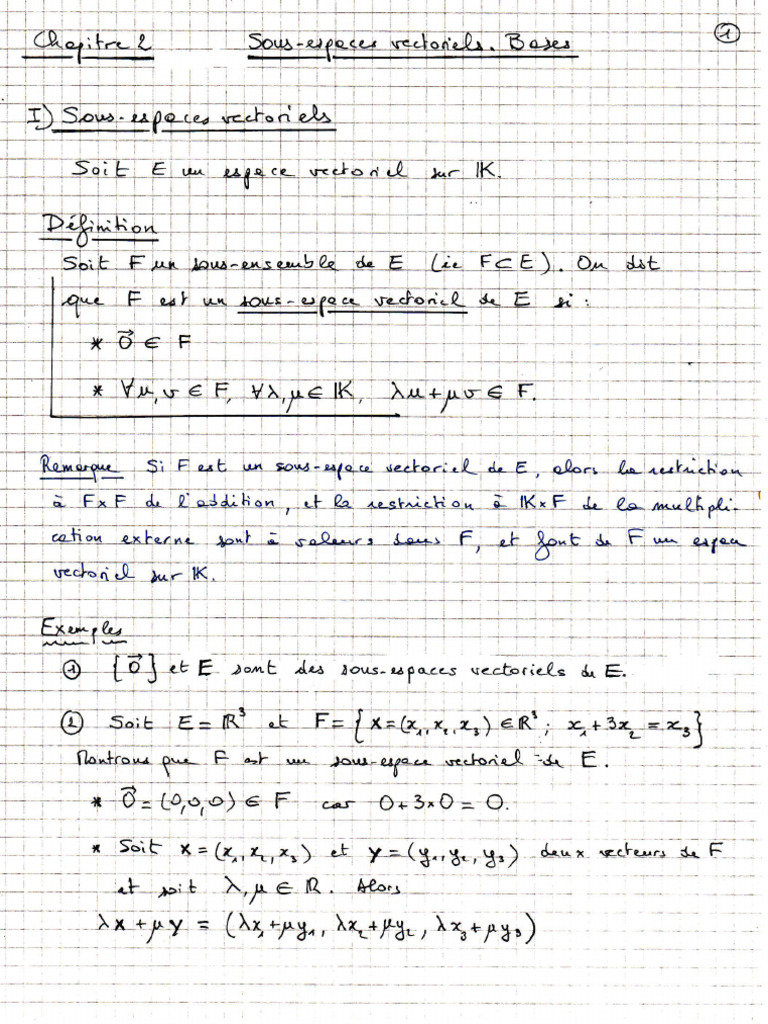 ①
Chapitre 2 Sous-espaces vectoriels. Bases
I) Sous-espaces vectoriels
Soit E un espace vectoriel sur 𝕂.
Définition
Soit F un sous-ensemble de E (ie F⊂E). On dit
que F est un sous-espace vectoriel de E si :
* 0⃗ ∈ F
* ∀u,v ∈ F, ∀λ,μ ∈ 𝕂, λu+μv ∈ F.
Remarque Si F est un sous-espace vectoriel de E, alors la restriction
à F×F de l'addition, et la restriction à 𝕂×F de la multipli-
cation externe sont à valeurs dans F, et font de F un espace
vectoriel sur 𝕂.
Exemples
① {0⃗} et E sont des sous-espaces vectoriels de E.
② Soit E = ℝ³ et F = {x=(x₁,x₂,x₃) ∈ ℝ³ ; x₁+3x₂ = x₃}
Montrons que F est un sous-espace vectoriel de E.
* 0⃗ = (0,0,0) ∈ F car 0+3×0 = 0.
* Soit x = (x₁,x₂,x₃) et y = (y₁,y₂,y₃) deux vecteurs de F
et soit λ,μ ∈ ℝ. Alors
λx+μy = (λx₁+μy₁, λx₂+μy₂, λx₃+μy₃)